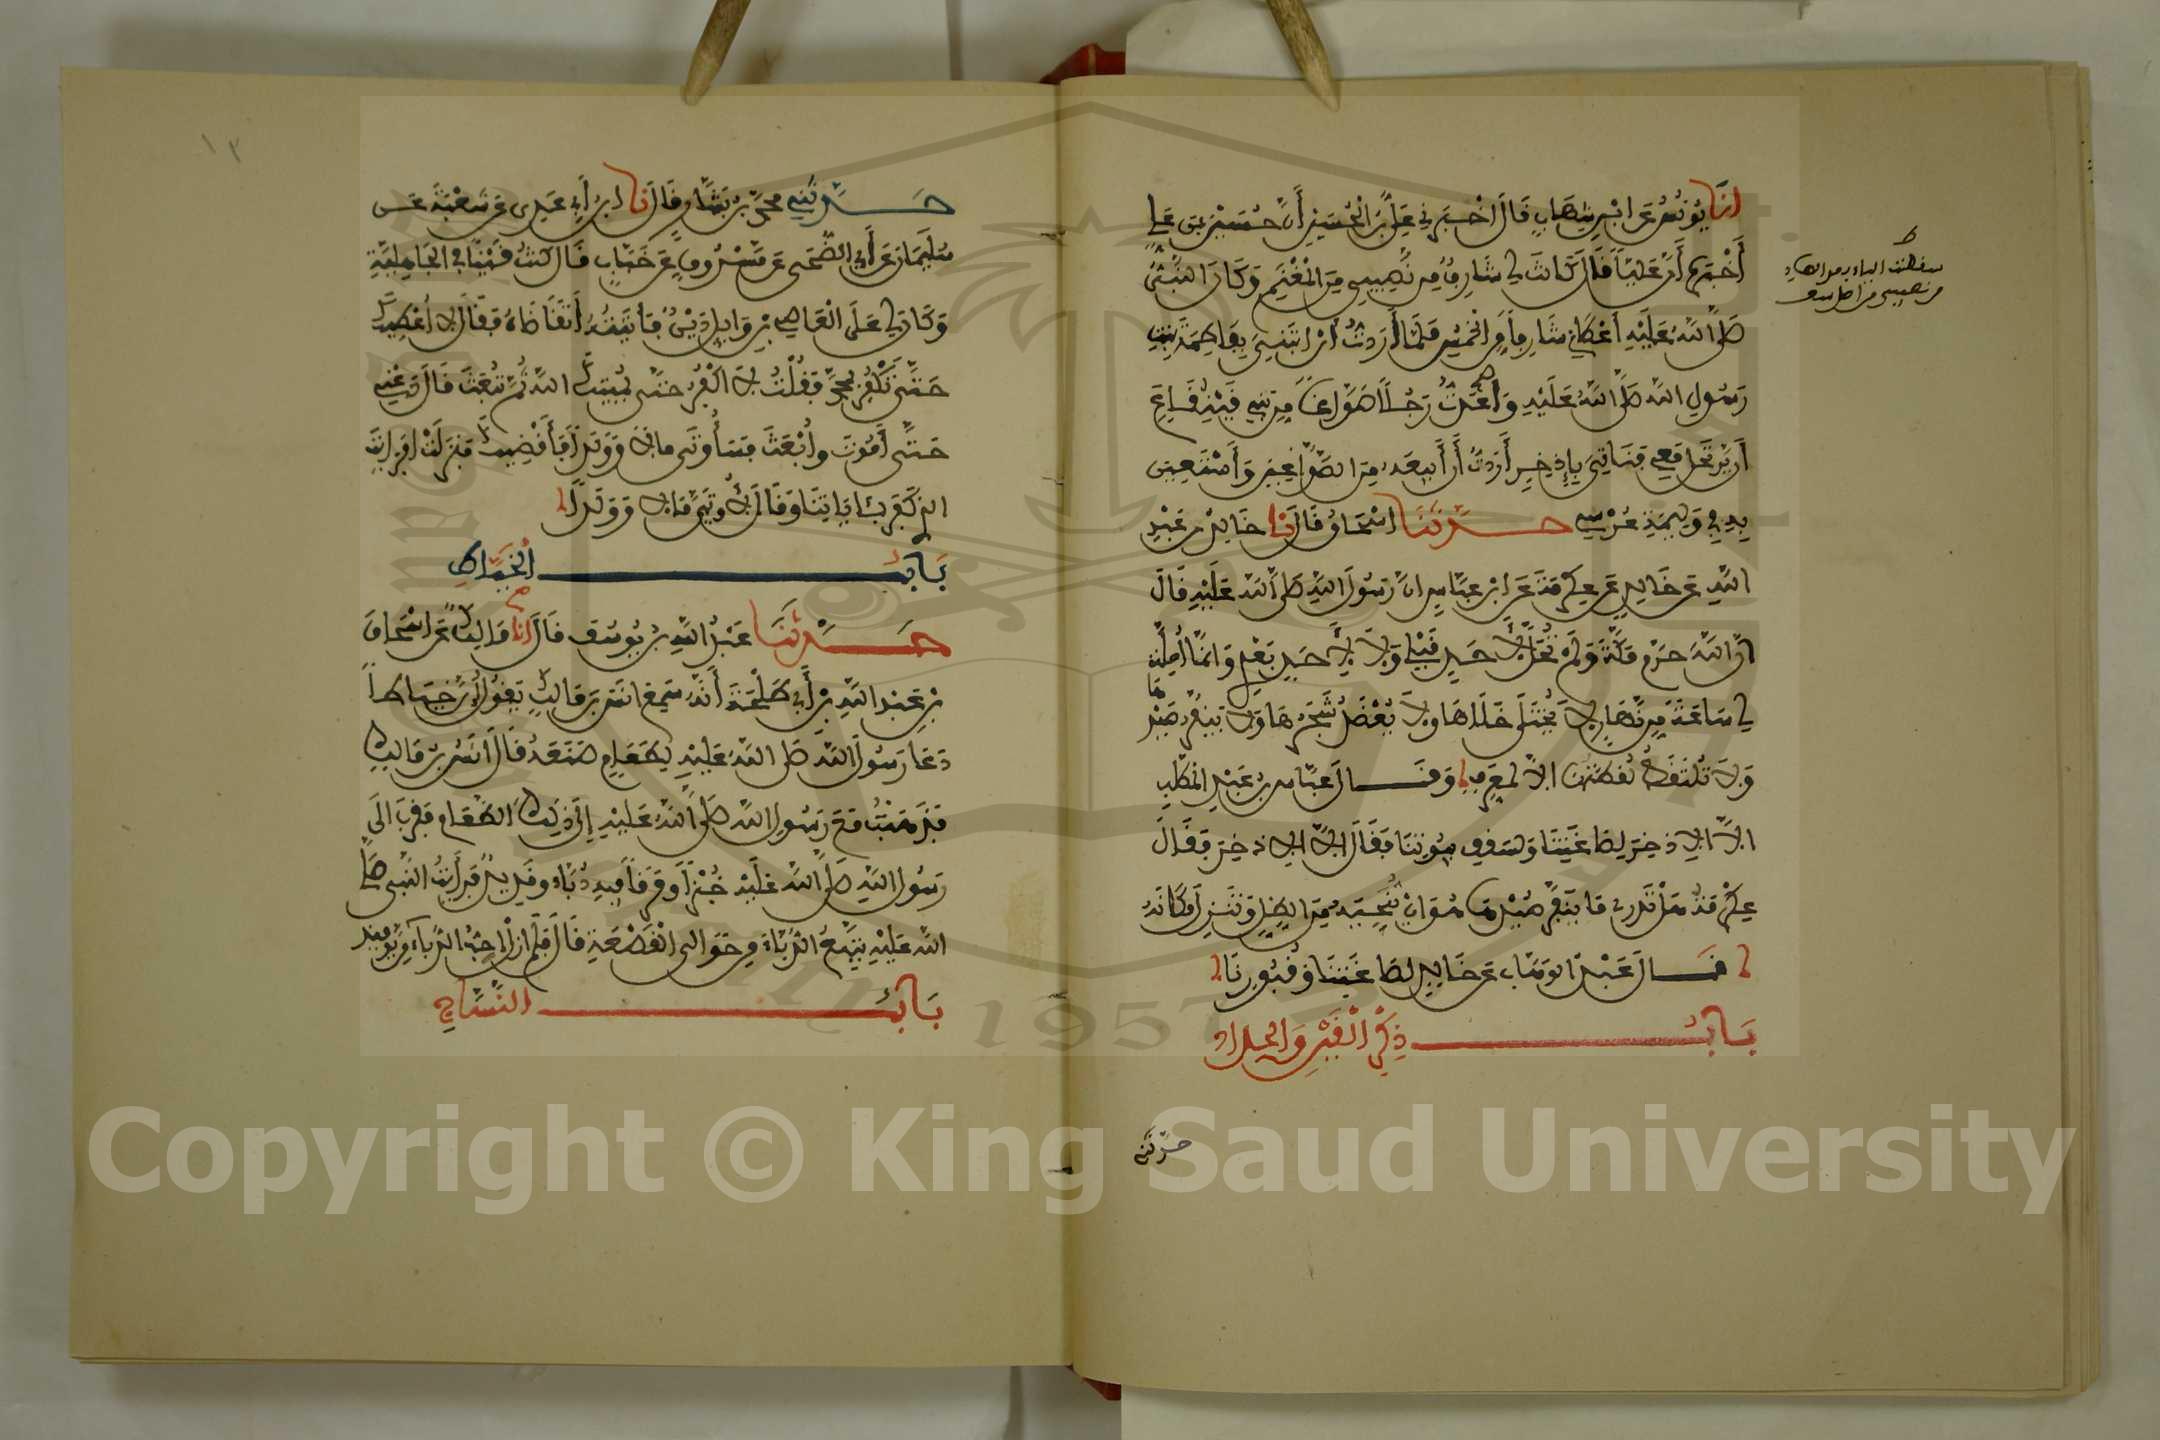 انا يونس عن ابن شهاب قال اخبرني علي بن الحسين أن حسين بن علي
أخبره أن عليا قال كانت لي شارف من نصيبي من المغنم وكان النبي
صلى الله عليه أعطاني شارفا من الخمس فلما أردت أن ابتني بفاطمة بنت
رسول الله صلى الله عليه واعدت رجلا صواغا من بني قينقاع
أن يرتحل معي فناتي بإذخر أردت أن أبيعه من الصواغين وأستعين
به في وليمة عرسي حدثنا اسحاق قال نا خالد بن عبد
الله عن خالد عن عكرمة عن ابن عباس ان رسول الله صلى الله عليه قال
ان الله حرم مكة ولم تحل لأحد قبلي ولا لأحد بعدي وانما أحلت
لي ساعة من نهار لا يختلى خلاها ولا يعضد شجرها ولا ينفر صيدها
ولا تلتقط لقطتها الا لمعرف وقال عباس بن عبد المطلب
الا الاذخر لصاغتنا ولسقف بيوتنا فقال الا الاذخر فقال
عكرمة هل تدري ما ينفر صيدها هو ان تنحيه من الظل وتنزل مكانه
قال عبد الوهاب عن خالد لصاغتنا وقبورنا
باب ذكر القين والحداد
حدثني
ط
سقطت الباء
من نصيبي من اصل
١٢
حدثني محمد بن بشار قال نا ابن أبي عدي عن شعبة عن
سليمان عن أبي الضحى عن مسروق عن خباب قال كنت قينا في الجاهلية
وكان لي على العاصي بن وايل دين فأتيته أتقاضاه فقال لا أعطيك
حتى تكفر بمحمد فقلت لا اكفر حتى يميتك الله ثم تبعث قال دعني
حتى أموت وأبعث فسأوتى مالا وولدا فأقضيك فنزلت افرايت
الذي كفر باياتنا وقال لأوتين مالا وولدا
باب الخياط
حدثنا عبد الله بن يوسف قال انا مالك عن اسحاق
بن عبد الله بن أبي طلحة أنه سمع انس بن مالك يقول إن خياطا
دعا رسول الله صلى الله عليه لطعام صنعه قال انس بن مالك
فذهبت مع رسول الله صلى الله عليه إلى ذلك الطعام فقرب الى
رسول الله صلى الله عليه خبزا ومرقا فيه دباء وقديد فرأيت النبي صلى
الله عليه يتتبع الدباء من حوالى القصعة قال فلم ازل احب الدباء من يومئذ
باب النساج
1957
Copyright © King Saud University